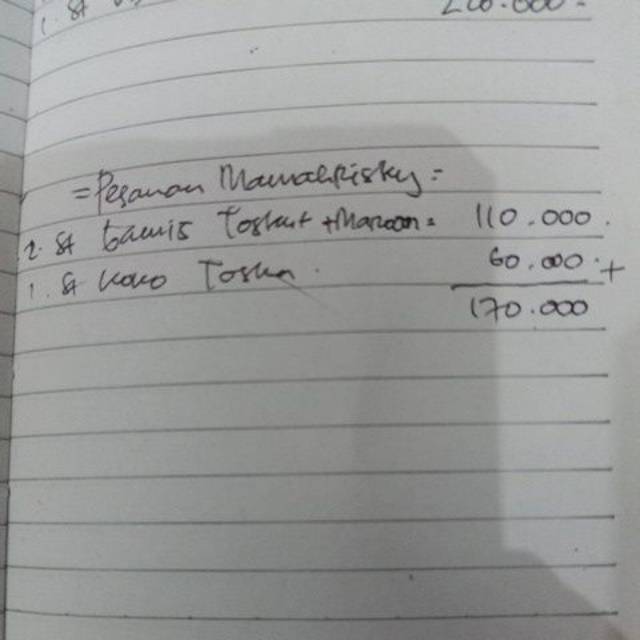 1. st 200.000.-
= Pesanan MamahRisky =
2. st Gamis Toska + Maroon = 110.000.
1. st Koko Toska. 60.000. +
170.000